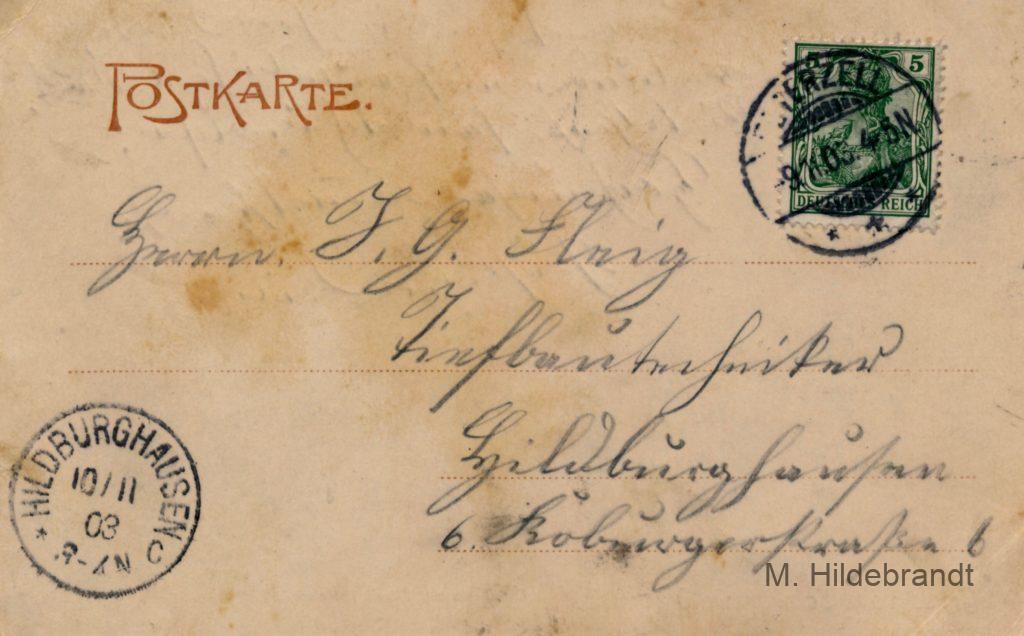 POSTKARTE.
5
DEUTSCHES REICH
9.11.03. 4-5N
Herrn. J. G. Fleig
Tiefbautechniker
Hildburghausen
6. Koburgerstraße 6
HILDBURGHAUSEN
10/11
03
M. Hildebrandt